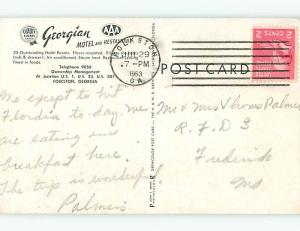 Georgian
MOTEL AND RESTAURANT
AAA
23 Outstanding Hotel Rooms.
(tub & shower). Air conditioned. Steam heat.
Finest in foods.
Telephone 9856
Ownership Management
At Junction U.S. 1, U.S. 23, U.S. 301
FOLKSTON, GEORGIA
FOLKSTON
JUN 29
7-PM
1953
GA.
POST CARD
2 CENTS 2
We expect to hit
Florida to-day. We
are eating our
breakfast here.
The trip is wonderful
Palmers
Mr & Mrs Palmer
R. F. D 5
Frederick
Md.